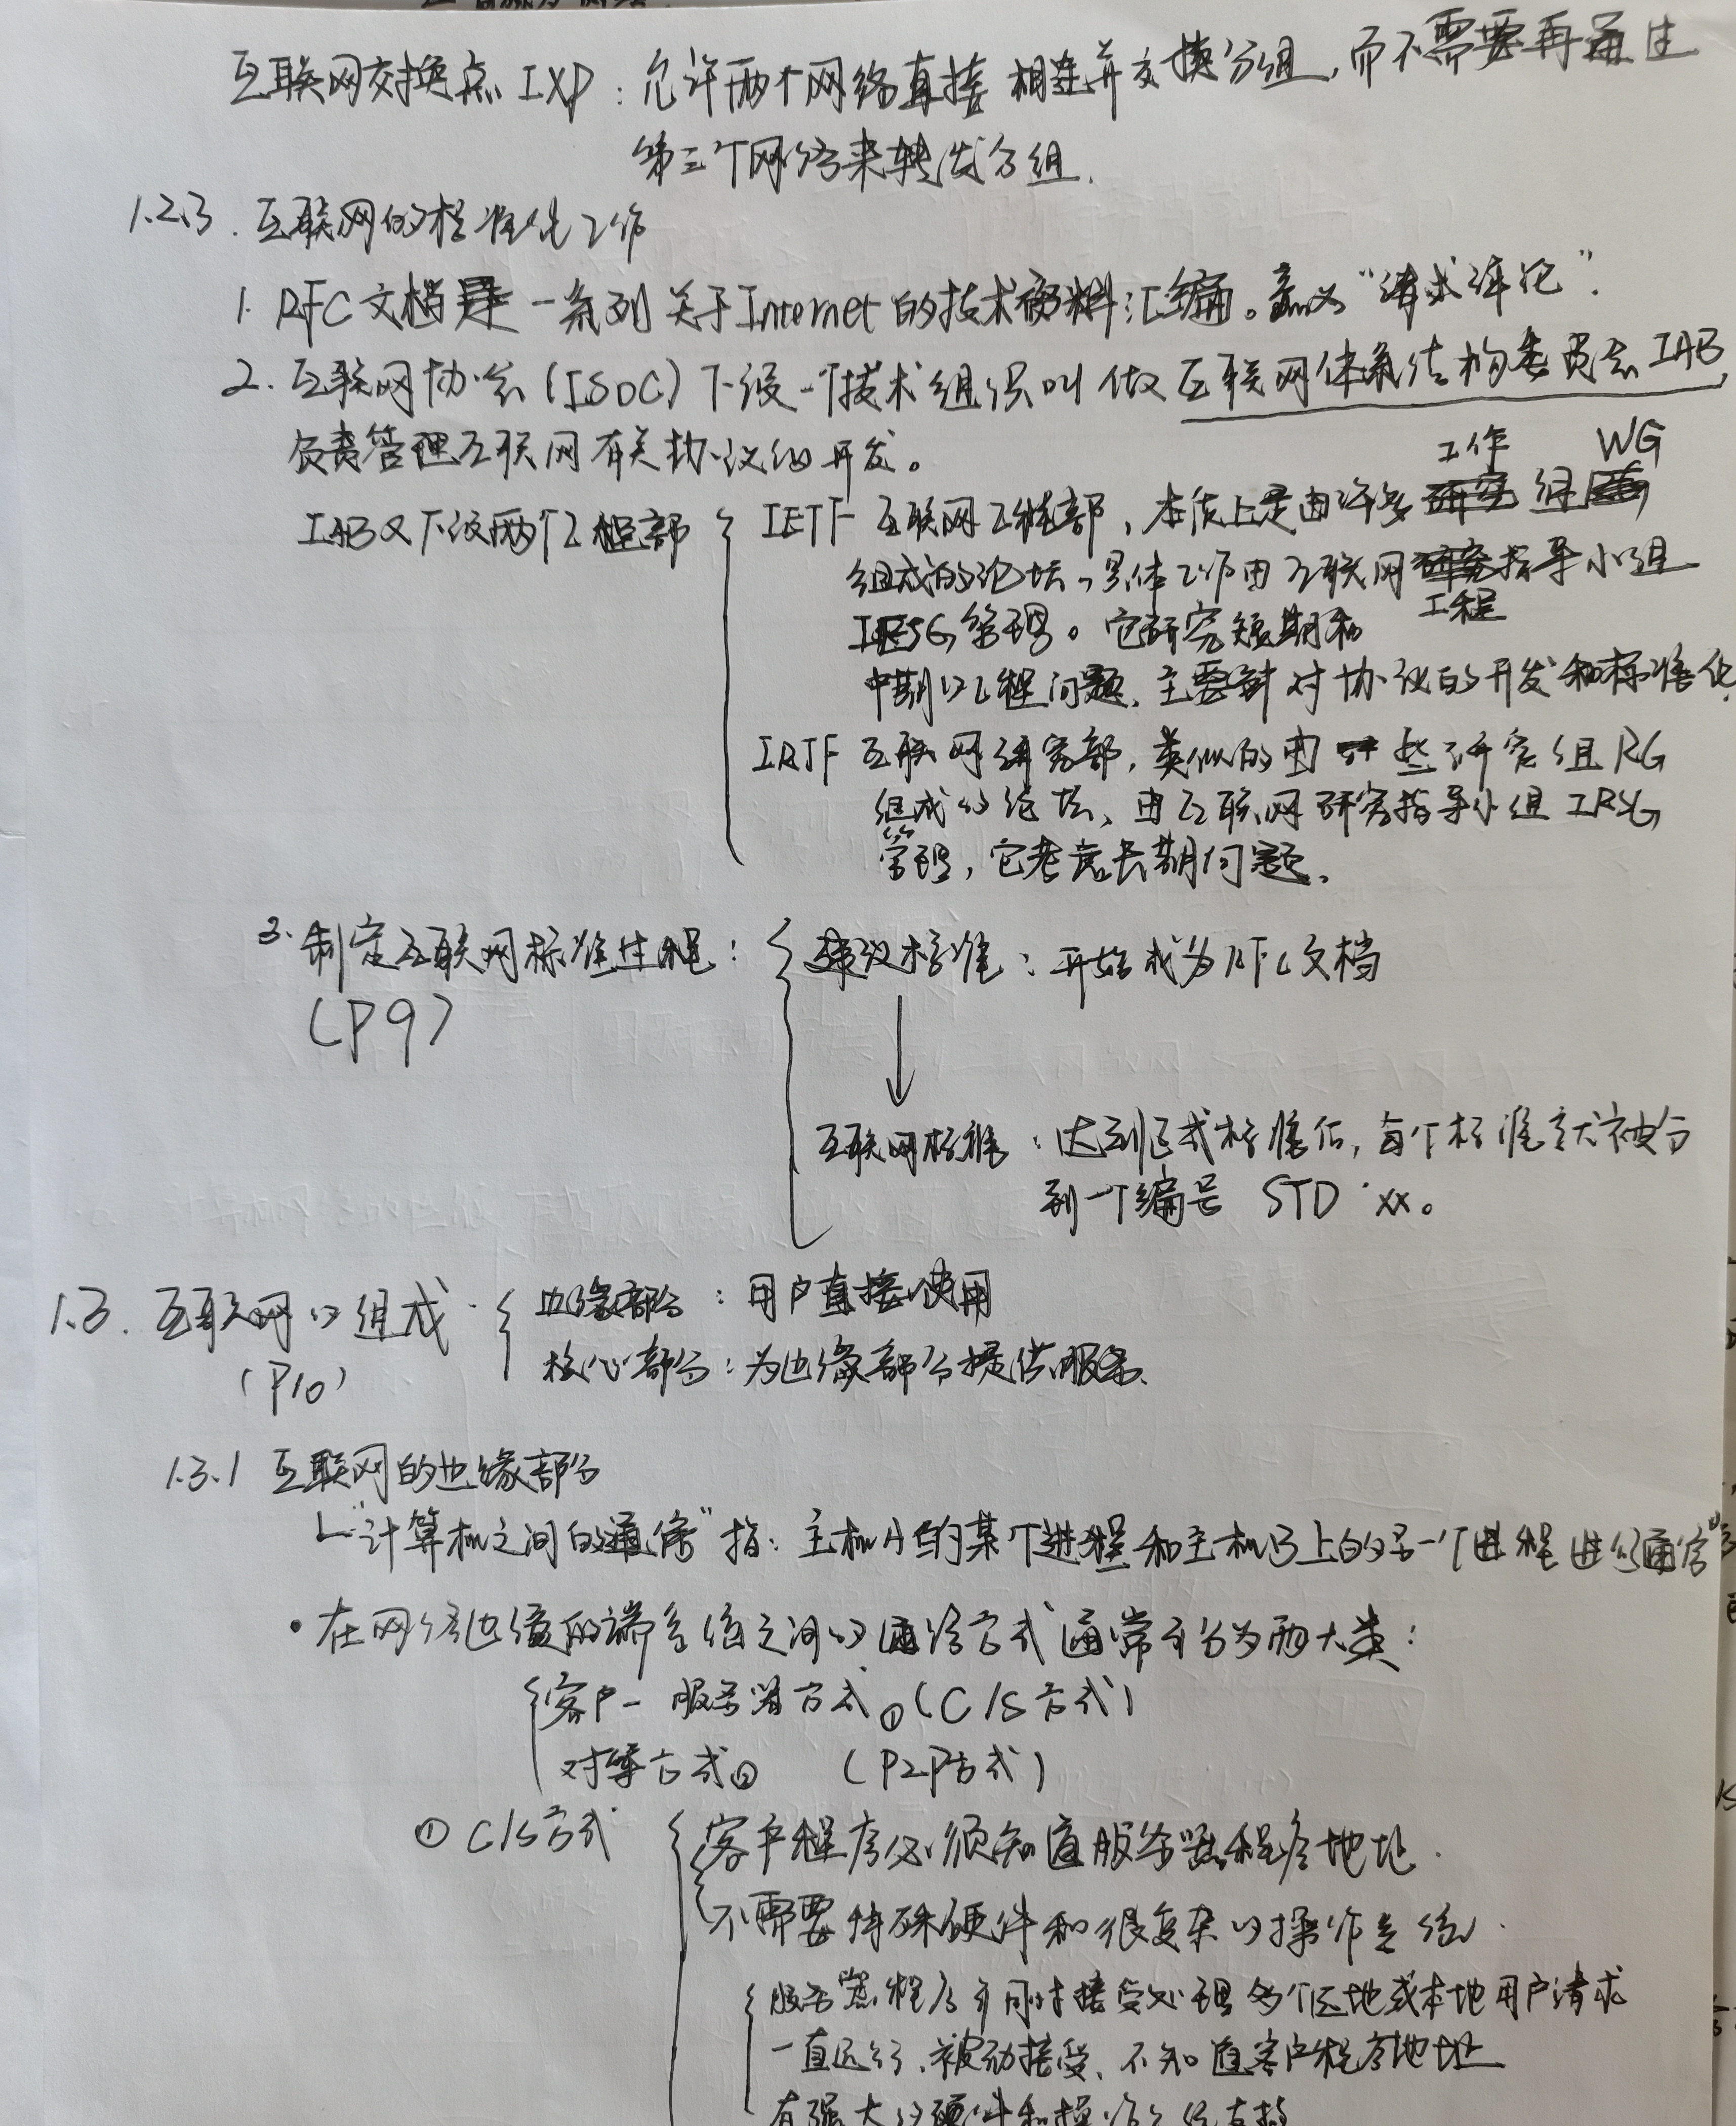 互联网交换点 IXP：允许两个网络直接相连并交换分组，而不需要再通过
第三个网络来转发分组.
1.2.3. 互联网的标准化工作
1. RFC文档是一系列关于Internet的技术资料汇编。意义“请求评论”.
2. 互联网协会(ISOC)下设一个技术组织叫做互联网体系结构委员会IAB,
负责管理互联网有关协议的开发。
工作 WG
IAB又下设两个工程部 { IETF 互联网工程部，本质上是由许多组
组成的论坛，具体工作由互联网指导小组
工程
IESG管理。它研究短期和
中期的工程问题, 主要针对协议的开发和标准化.
IRTF 互联网研究部，类似的由一些研究组RG
组成的论坛、由互联网研究指导小组IRSG
管理，它考虑长期问题.
3. 制定互联网标准过程： { 建议标准：开始成为RFC文档
(P9)
↓
互联网标准：达到正式标准后，每个标准就被分
到一个编号 STD xx。
1.3. 互联网的组成 { 边缘部分：用户直接使用
(P10)
核心部分：为边缘部分提供服务.
1.3.1 互联网的边缘部分
“计算机之间的通信”指：主机A的某个进程和主机B上的另一个进程进行通信”
• 在网络边缘的端系统之间的通信方式通常可分为两大类：
{ 客户—服务器方式①(C/S方式)
对等方式② (P2P方式)
① C/S方式 { { 客户程序必须知道服务器程序地址.
不需要特殊硬件和很复杂的操作系统.
{ 服务器程序可同时接受处理多个远地或本地用户请求
一直运行、被动接受、不知道客户程序地址
有强大的硬件和操作系统支持